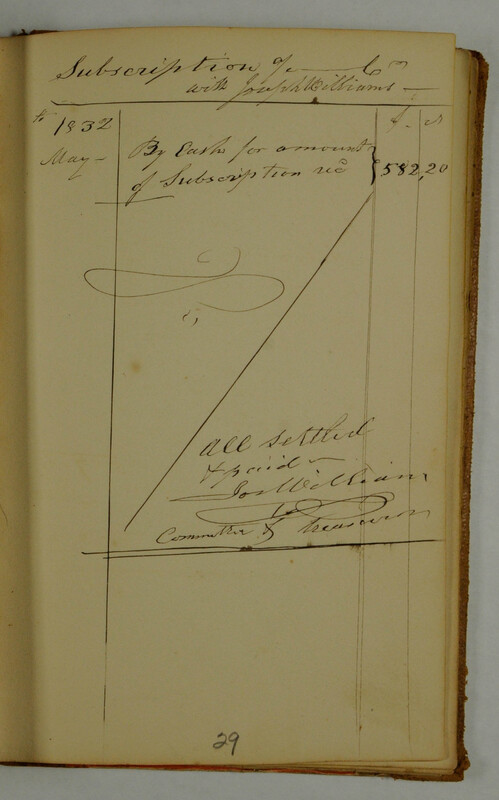 Subscription
with Joseph Williams
1832
May
By Cash for amount
of Subscription recd 582,20
all settled
& paid
Jos Williams
Committee & Treasurer
29